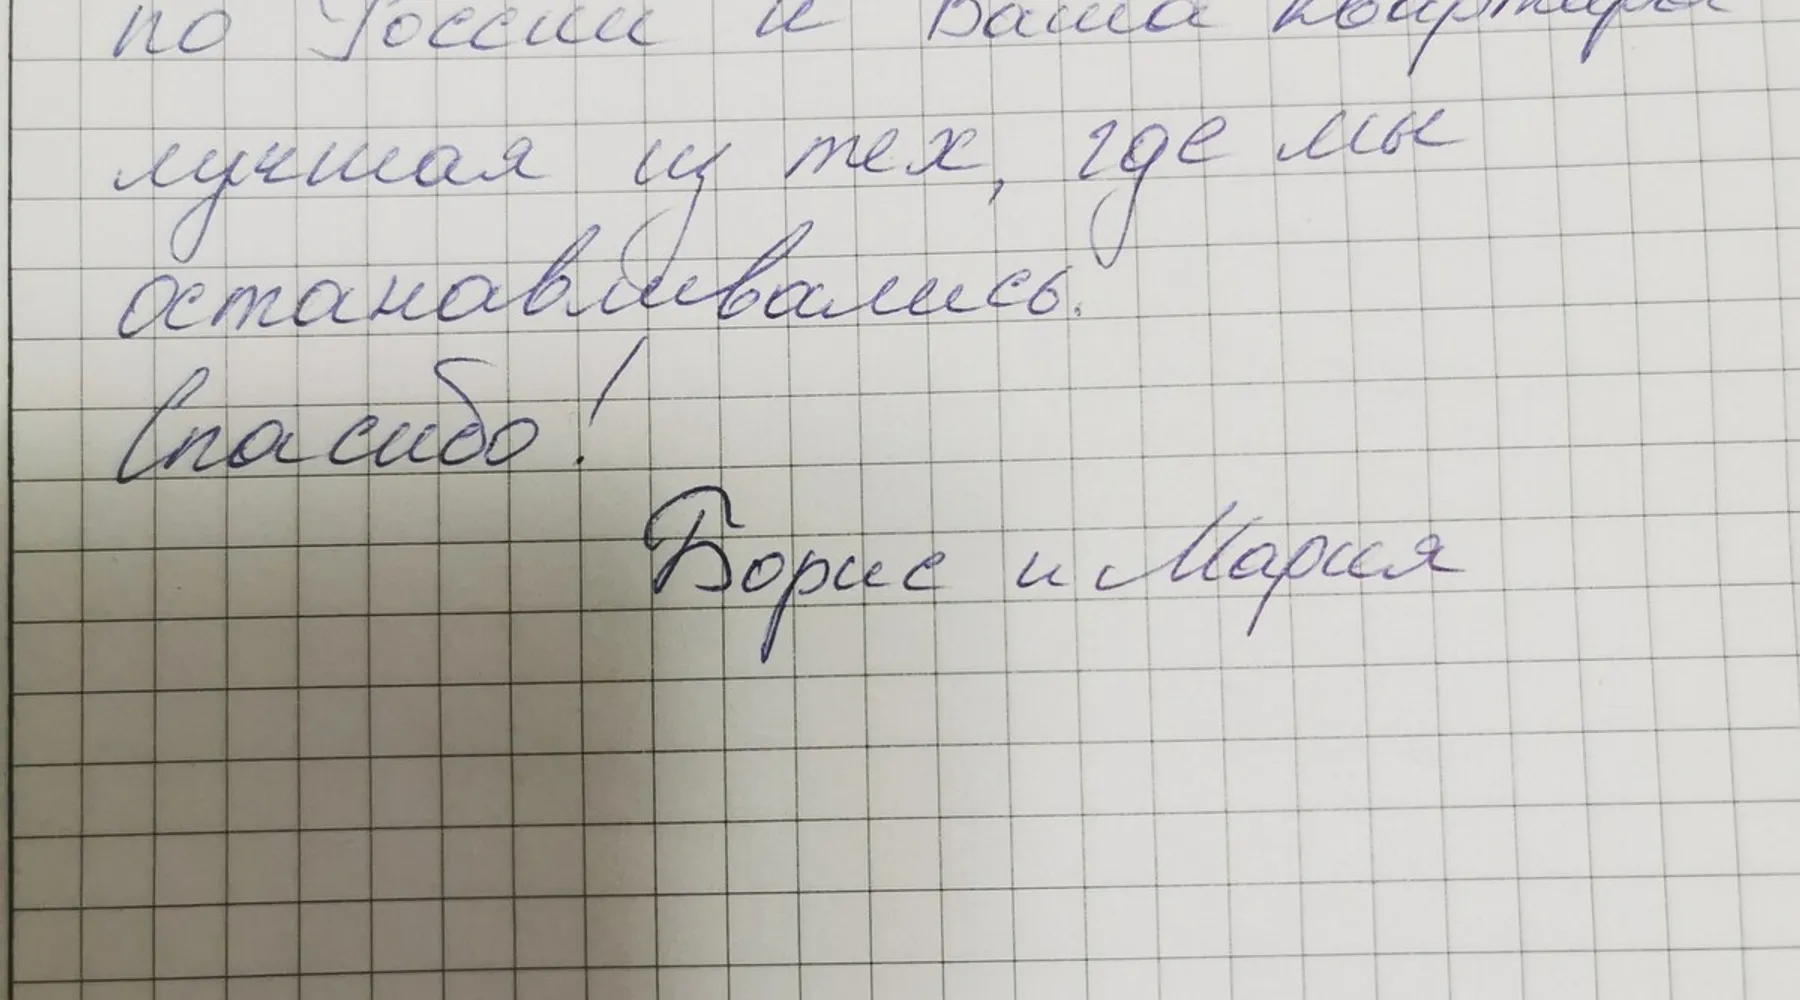 по России и Ваша квартира
лучшая из тех, где мы
останавливались.
Спасибо!
Борис и Мария